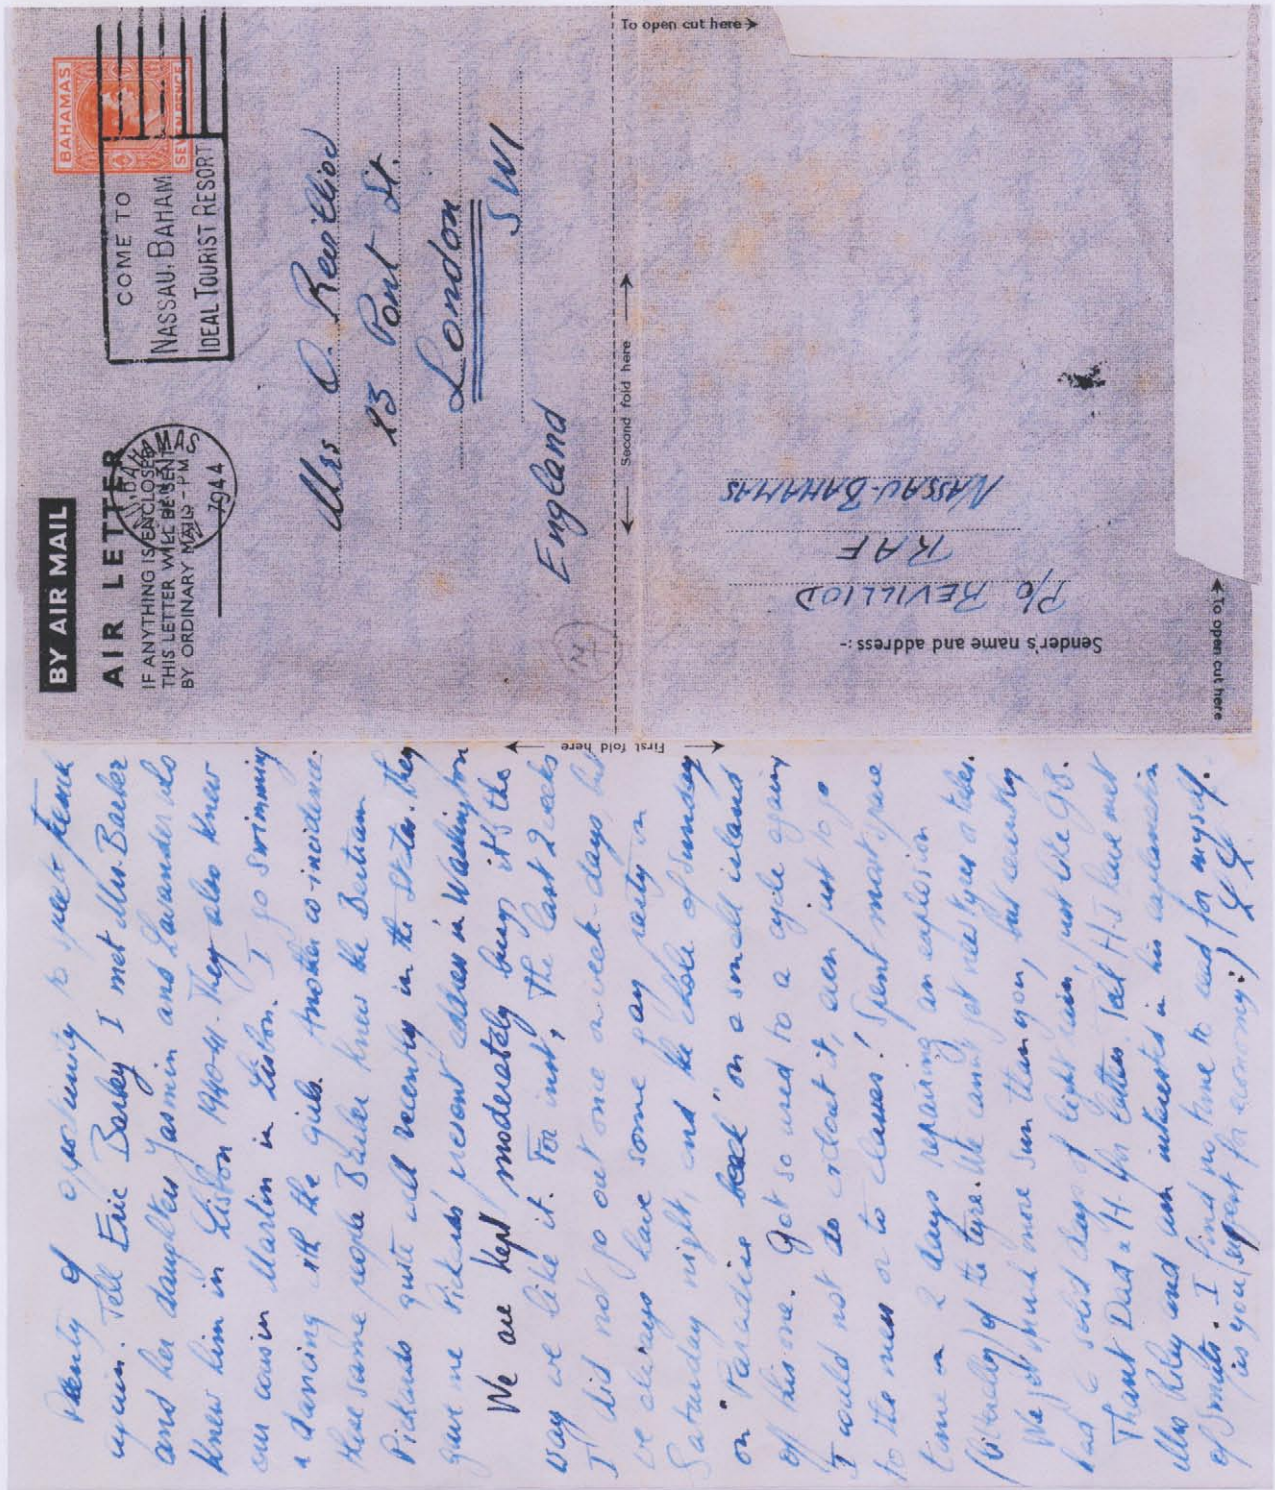 BY AIR MAIL
AIR LETTER
IF ANYTHING IS ENCLOSED
THIS LETTER WILL BE SENT
BY ORDINARY MAIL
BAHAMAS
PM
1944
COME TO
NASSAU, BAHAM
IDEAL TOURIST RESORT
BAHAMAS
SEVEN PENCE
Mrs O. Revilliod
23 Pont St.
London
SW1
England
To open cut here
Second fold here
Sender's name and address:-
P/O REVILLIOD
RAF
NASSAU-BAHAMAS
To open cut here
First fold here
Plenty of opportunity to speak french
again. Tell Eric Barley I met Mrs. Barker
and her daughters Yasmin and Lavander who
knew him in Lisbon 1940-41. They also knew
our cousin Martin in Lisbon. I go swimming
& dancing with the girls. Another co-incidence.
these same people Barker knew the Bertram
Pickards quite well recently in the States. They
gave me Pickards' present address in Washington
We are kept moderately busy it's the
way we like it. For inst, the last 2 weeks
I did not go out one on week-days, but
we always have some gay party on
Saturday night, and the whole of Sunday
on "Paradise beach" on a small island
off this one. Got so used to a cycle again
I could not do without it, even just to go
to the mess or to classes! Spent most spare
time on 2 days repairing an explosion
(literally) of the tyre. We can't get new tyres or tubes.
We get much more sun than you, but recently
had 2 solid days of light rain, just like GB.
Thank Dad & H. for letters. Tell H. I have met
Mrs Riley and am interested in his explanation
of Smuts. I find no time to read for myself.
as you (except for economy!)